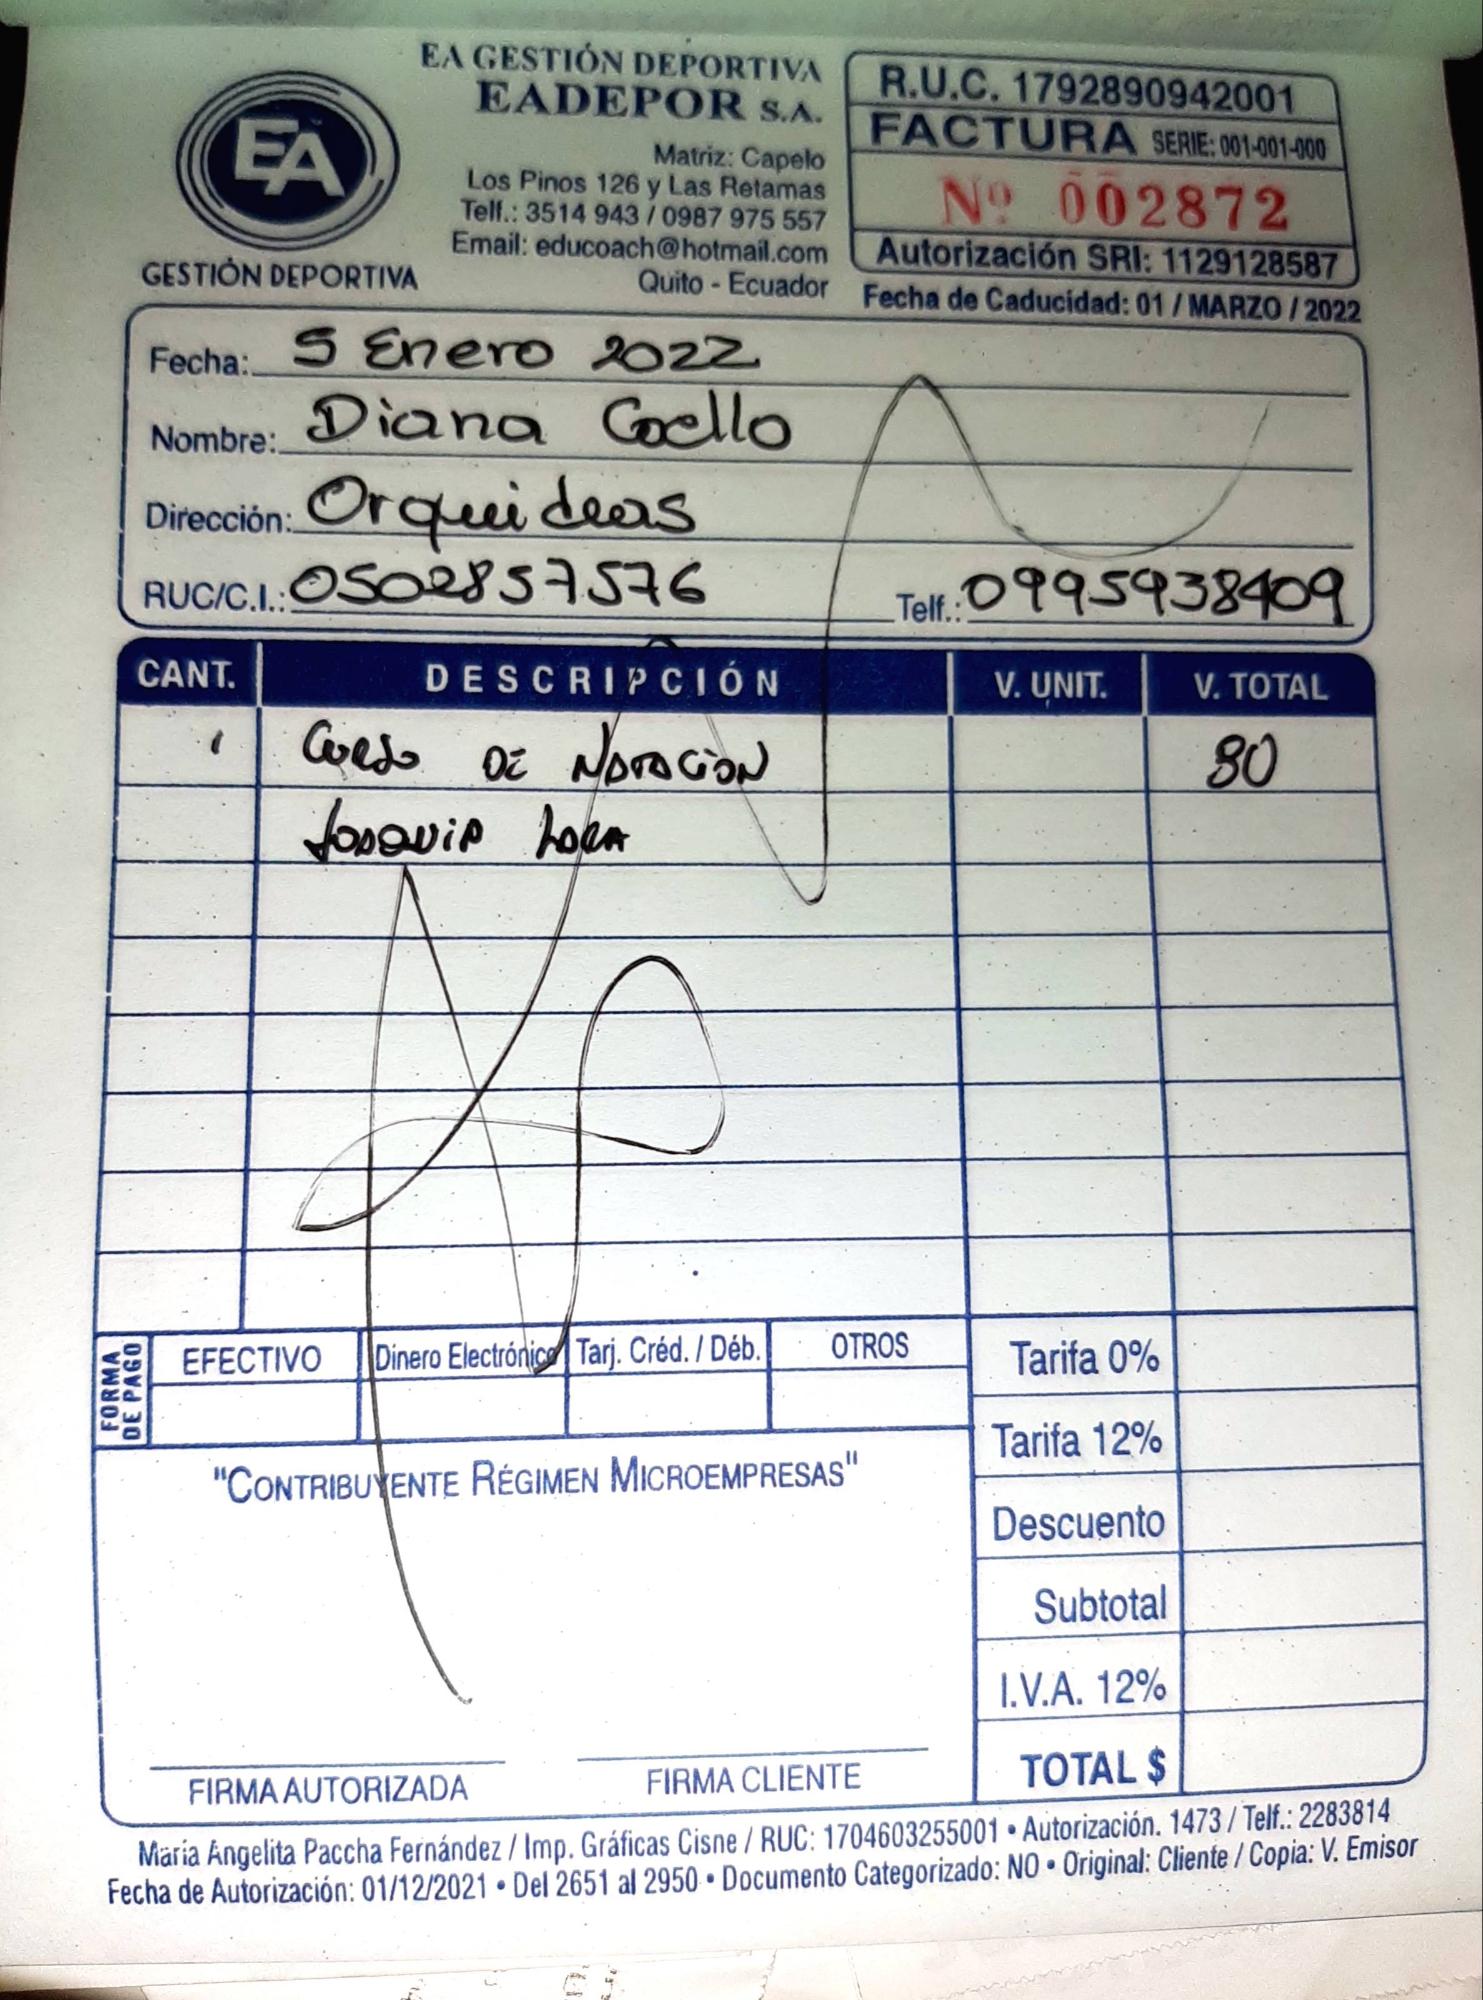 EA GESTIÓN DEPORTIVA
EADEPOR S.A.
Matriz: Capelo
Los Pinos 126 y Las Retamas
Telf.: 3514 943 / 0987 975 557
Email: educoach@hotmail.com
Quito - Ecuador
EA
GESTIÓN DEPORTIVA
R.U.C. 1792890942001
FACTURA SERIE: 001-001-000
Nº 002872
Autorización SRI: 1129128587
Fecha de Caducidad: 01 / MARZO / 2022
Fecha: 5 Enero 2022
Nombre: Diana Coello
Dirección: Orquideas
RUC/C.I.: 0502857576 Telf.: 0995938409
CANT. DESCRIPCIÓN V. UNIT. V. TOTAL
1 Curso DE NATACIÓN 80
JOAQUIN LARA
FORMA DE PAGO
EFECTIVO Dinero Electrónico Tarj. Créd. / Déb. OTROS
Tarifa 0%
Tarifa 12%
"CONTRIBUYENTE RÉGIMEN MICROEMPRESAS"
Descuento
Subtotal
I.V.A. 12%
TOTAL $
FIRMA AUTORIZADA FIRMA CLIENTE
María Angelita Paccha Fernández / Imp. Gráficas Cisne / RUC: 1704603255001 • Autorización. 1473 / Telf.: 2283814
Fecha de Autorización: 01/12/2021 • Del 2651 al 2950 • Documento Categorizado: NO • Original: Cliente / Copia: V. Emisor